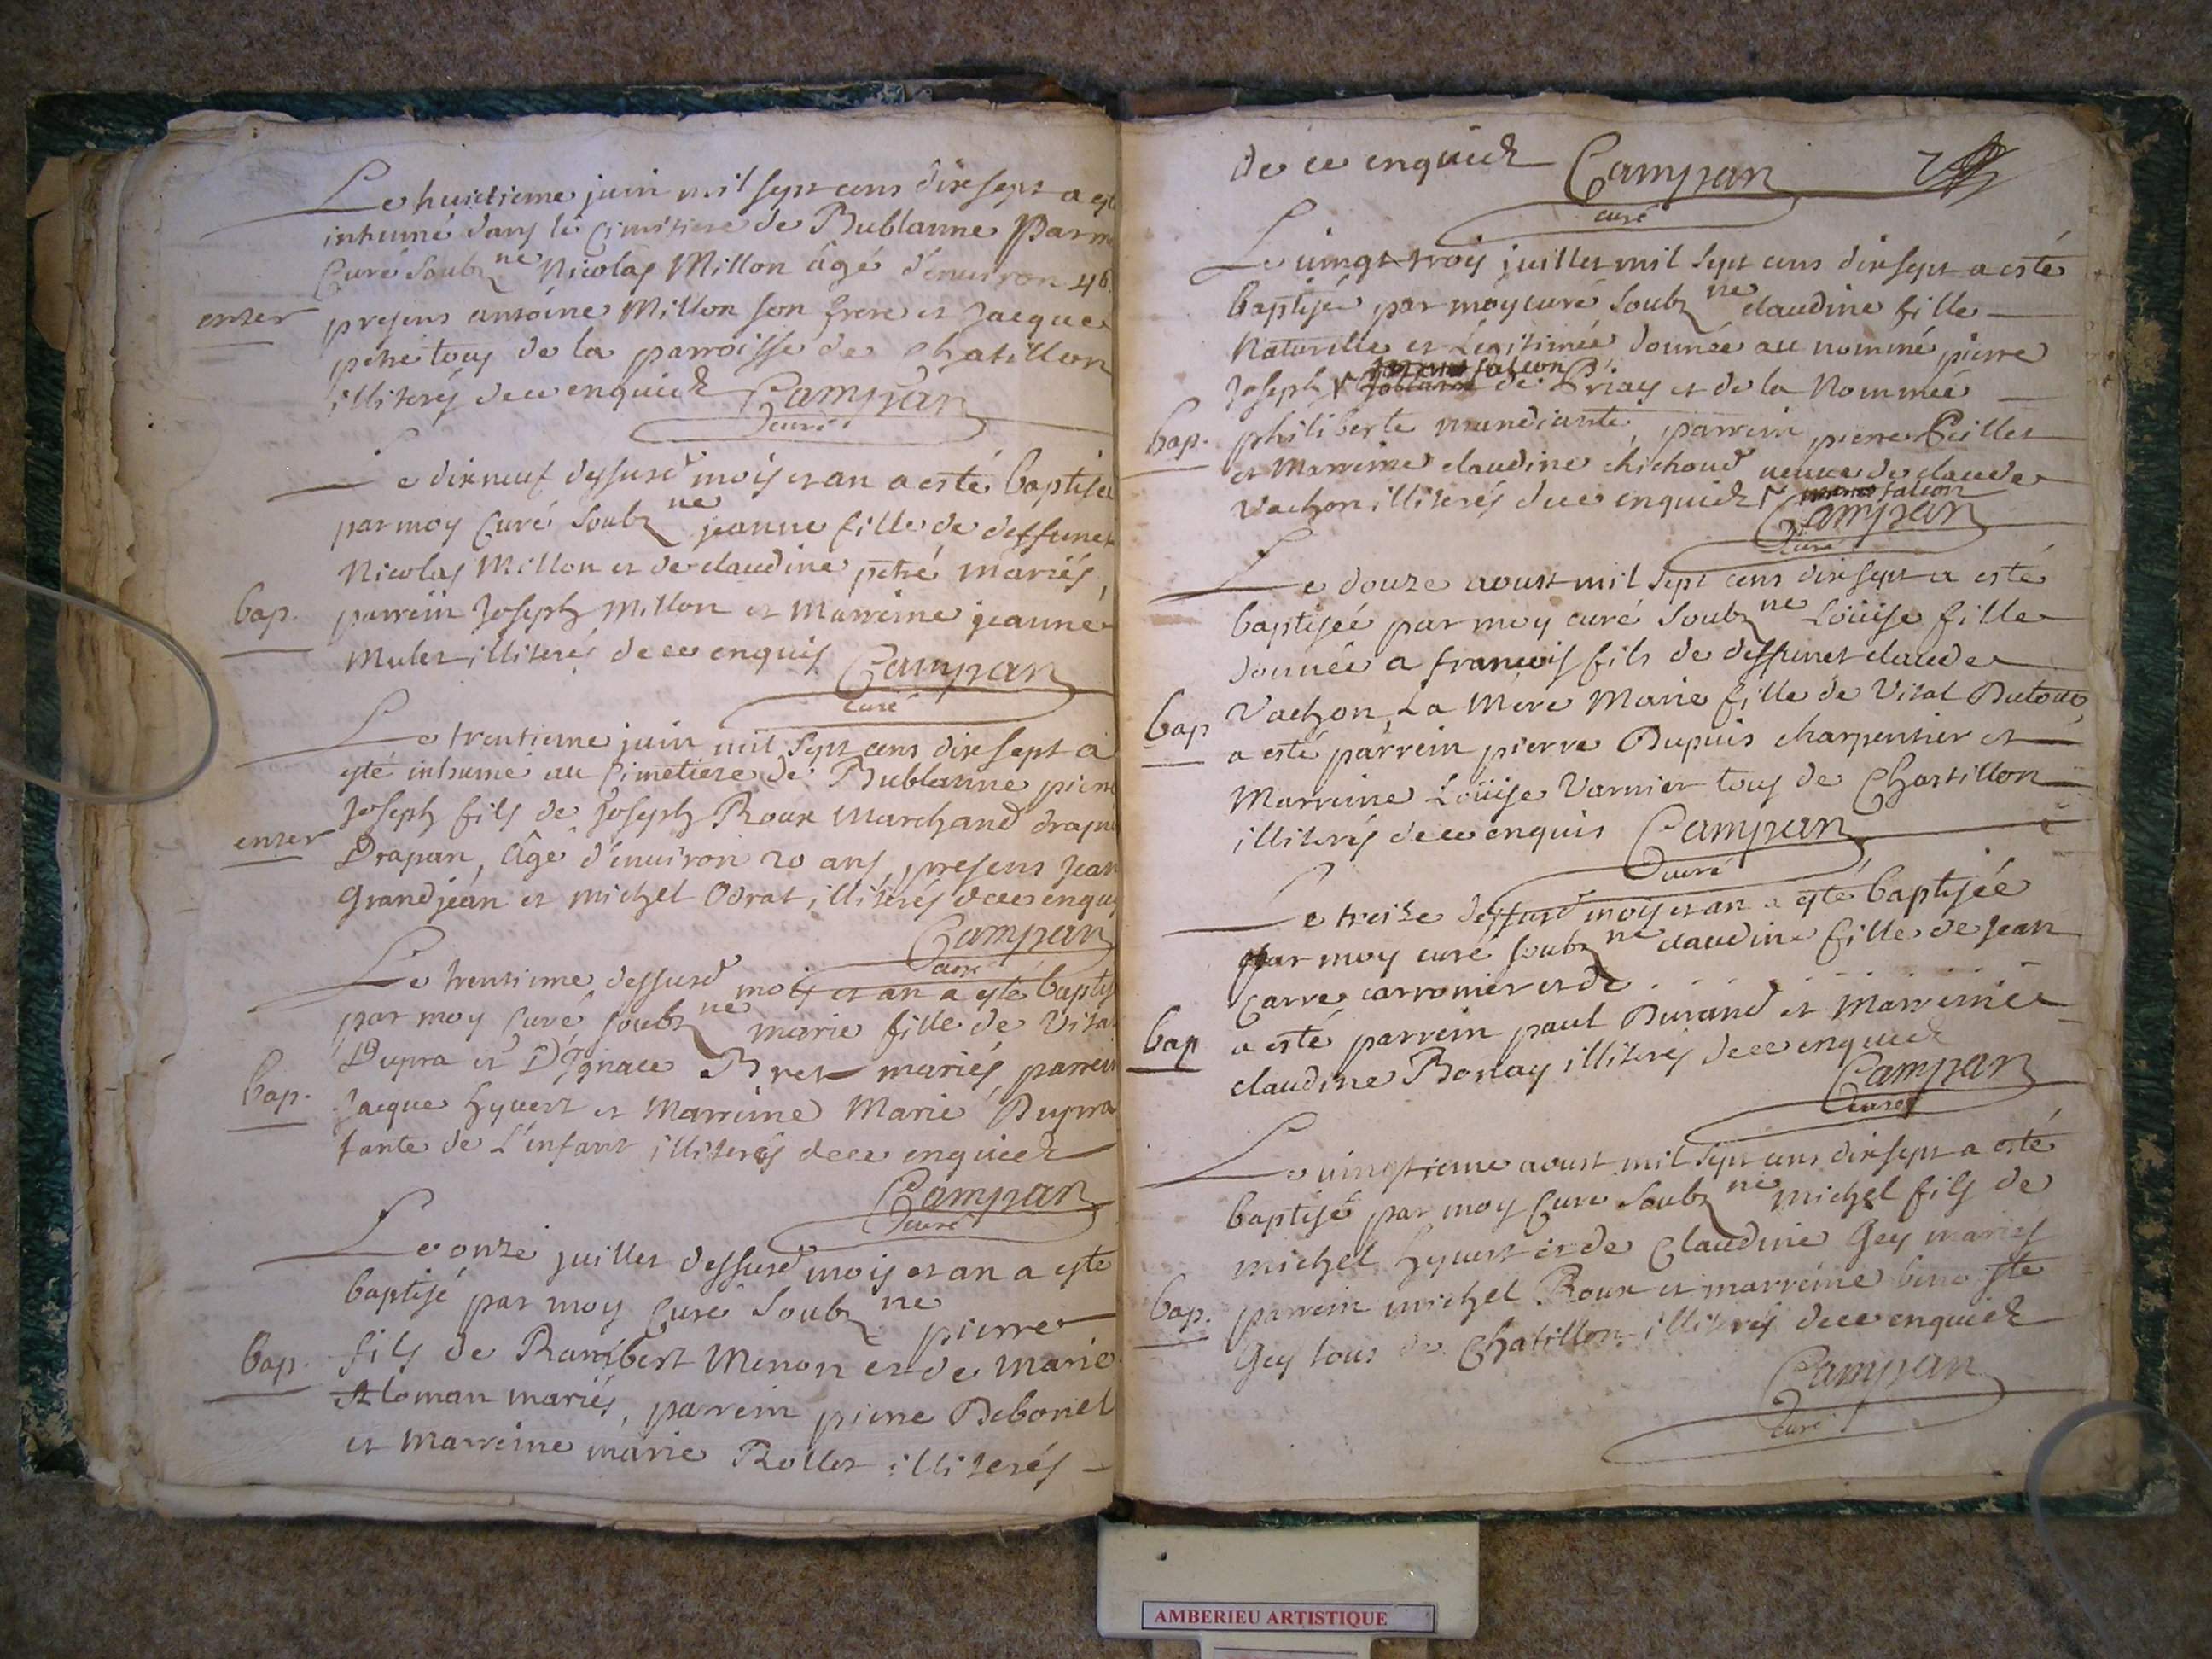 Le huictieme juin mil sept cens dixsept a esté
inhumé dans le Cimitiere de Bublanne Par m
Curé Soubz ne Nicolas Millon âgé d'environ 46
enter
presens antoine Millon son frere et Jacque
petré tous de la parroisse de Chatillon
illiterés de ce enquictz Campan
curé
Le dixneuf dessusd mois et an a esté baptisée
par moy Curé Soubz ne jeanne fille de deffunct
Nicolas Millon et de claudine petré mariés,
bap.
parrein Joseph Millon et Marreine jeanne
Mulet illiterés de ce enquis Campan
curé
Le trentieme juin mil Sept cens dixsept a
esté inhumé au Cimetiere de Bublanne pierre
Joseph fils de Joseph Roux Marchand drapie
enter
Drapan, Âgé d'environ 20 ans, presens Jean
Grandjean et michel Odrat, illiterés de ce enquis
Campan
curé
Le trentieme dessusd mois et an a esté baptis
par moy Curé soubz ne marie fille de Vital
Dupra et D'Ignace Bret mariés, parrein
bap.
Jacque hyvert et Marreine Marie Dupra
tante de L'enfant illiterés de ce enquictz
Campan
curé
Le onze juillet dessusd mois et an a esté
baptisé par moy Curé Soubz ne pierre
bap.
fils de Rambert Menon et de Marie
Aloman mariés, parrein pierre Deboriel
et Marreine marie Rollet illiterés
de ce enquictz Campan
curé
Le vingt trois juillet mil Sept cens dixsept a esté
baptisée par moy curé Soubz ne claudine fille
Naturelle et Légitimée donnée au nommé pierre
falcon
Joseph de Priay et de la Nommée
bap.
philiberte mandiante, parrein pierre Peillet
et Marreine claudine chichoud veuve de claude
Vachon illiterés de ce enquictz falcon
Campan
curé
Le douze aoust mil Sept cens dixsept a esté
baptiseé par moy curé Soubz ne Loüise fille
donnée a francois fils de deffunct claude
bap
Vachon, La Mere Marie fille de Vital Dutour
a esté parrein pierre Dupuis charpentier et
Marreine Loüise Varnier tous de Chastillon
illiterés de ce enquis Campan
curé
Le treize dessusd mois et an a esté baptisée
par moy curé soubz ne claudine fille de Jean
Carre carronier et de . . . . . . .
bap
a esté parrein paul Durand et Marreinee
claudine Bonay illiterés de ce enquictz
Campan
curé
Le vingtieme aoust mil Sept cens dixsept a esté
baptisé par moy Curé Soubz ne michel fils de
michel hyvert et de Claudine Gey mariés
bap.
parrein michel Roux et marreine benoiste
Gey tous de Chatillon illiterés de ce enquictz
Campan
curé
AMBERIEU ARTISTIQUE